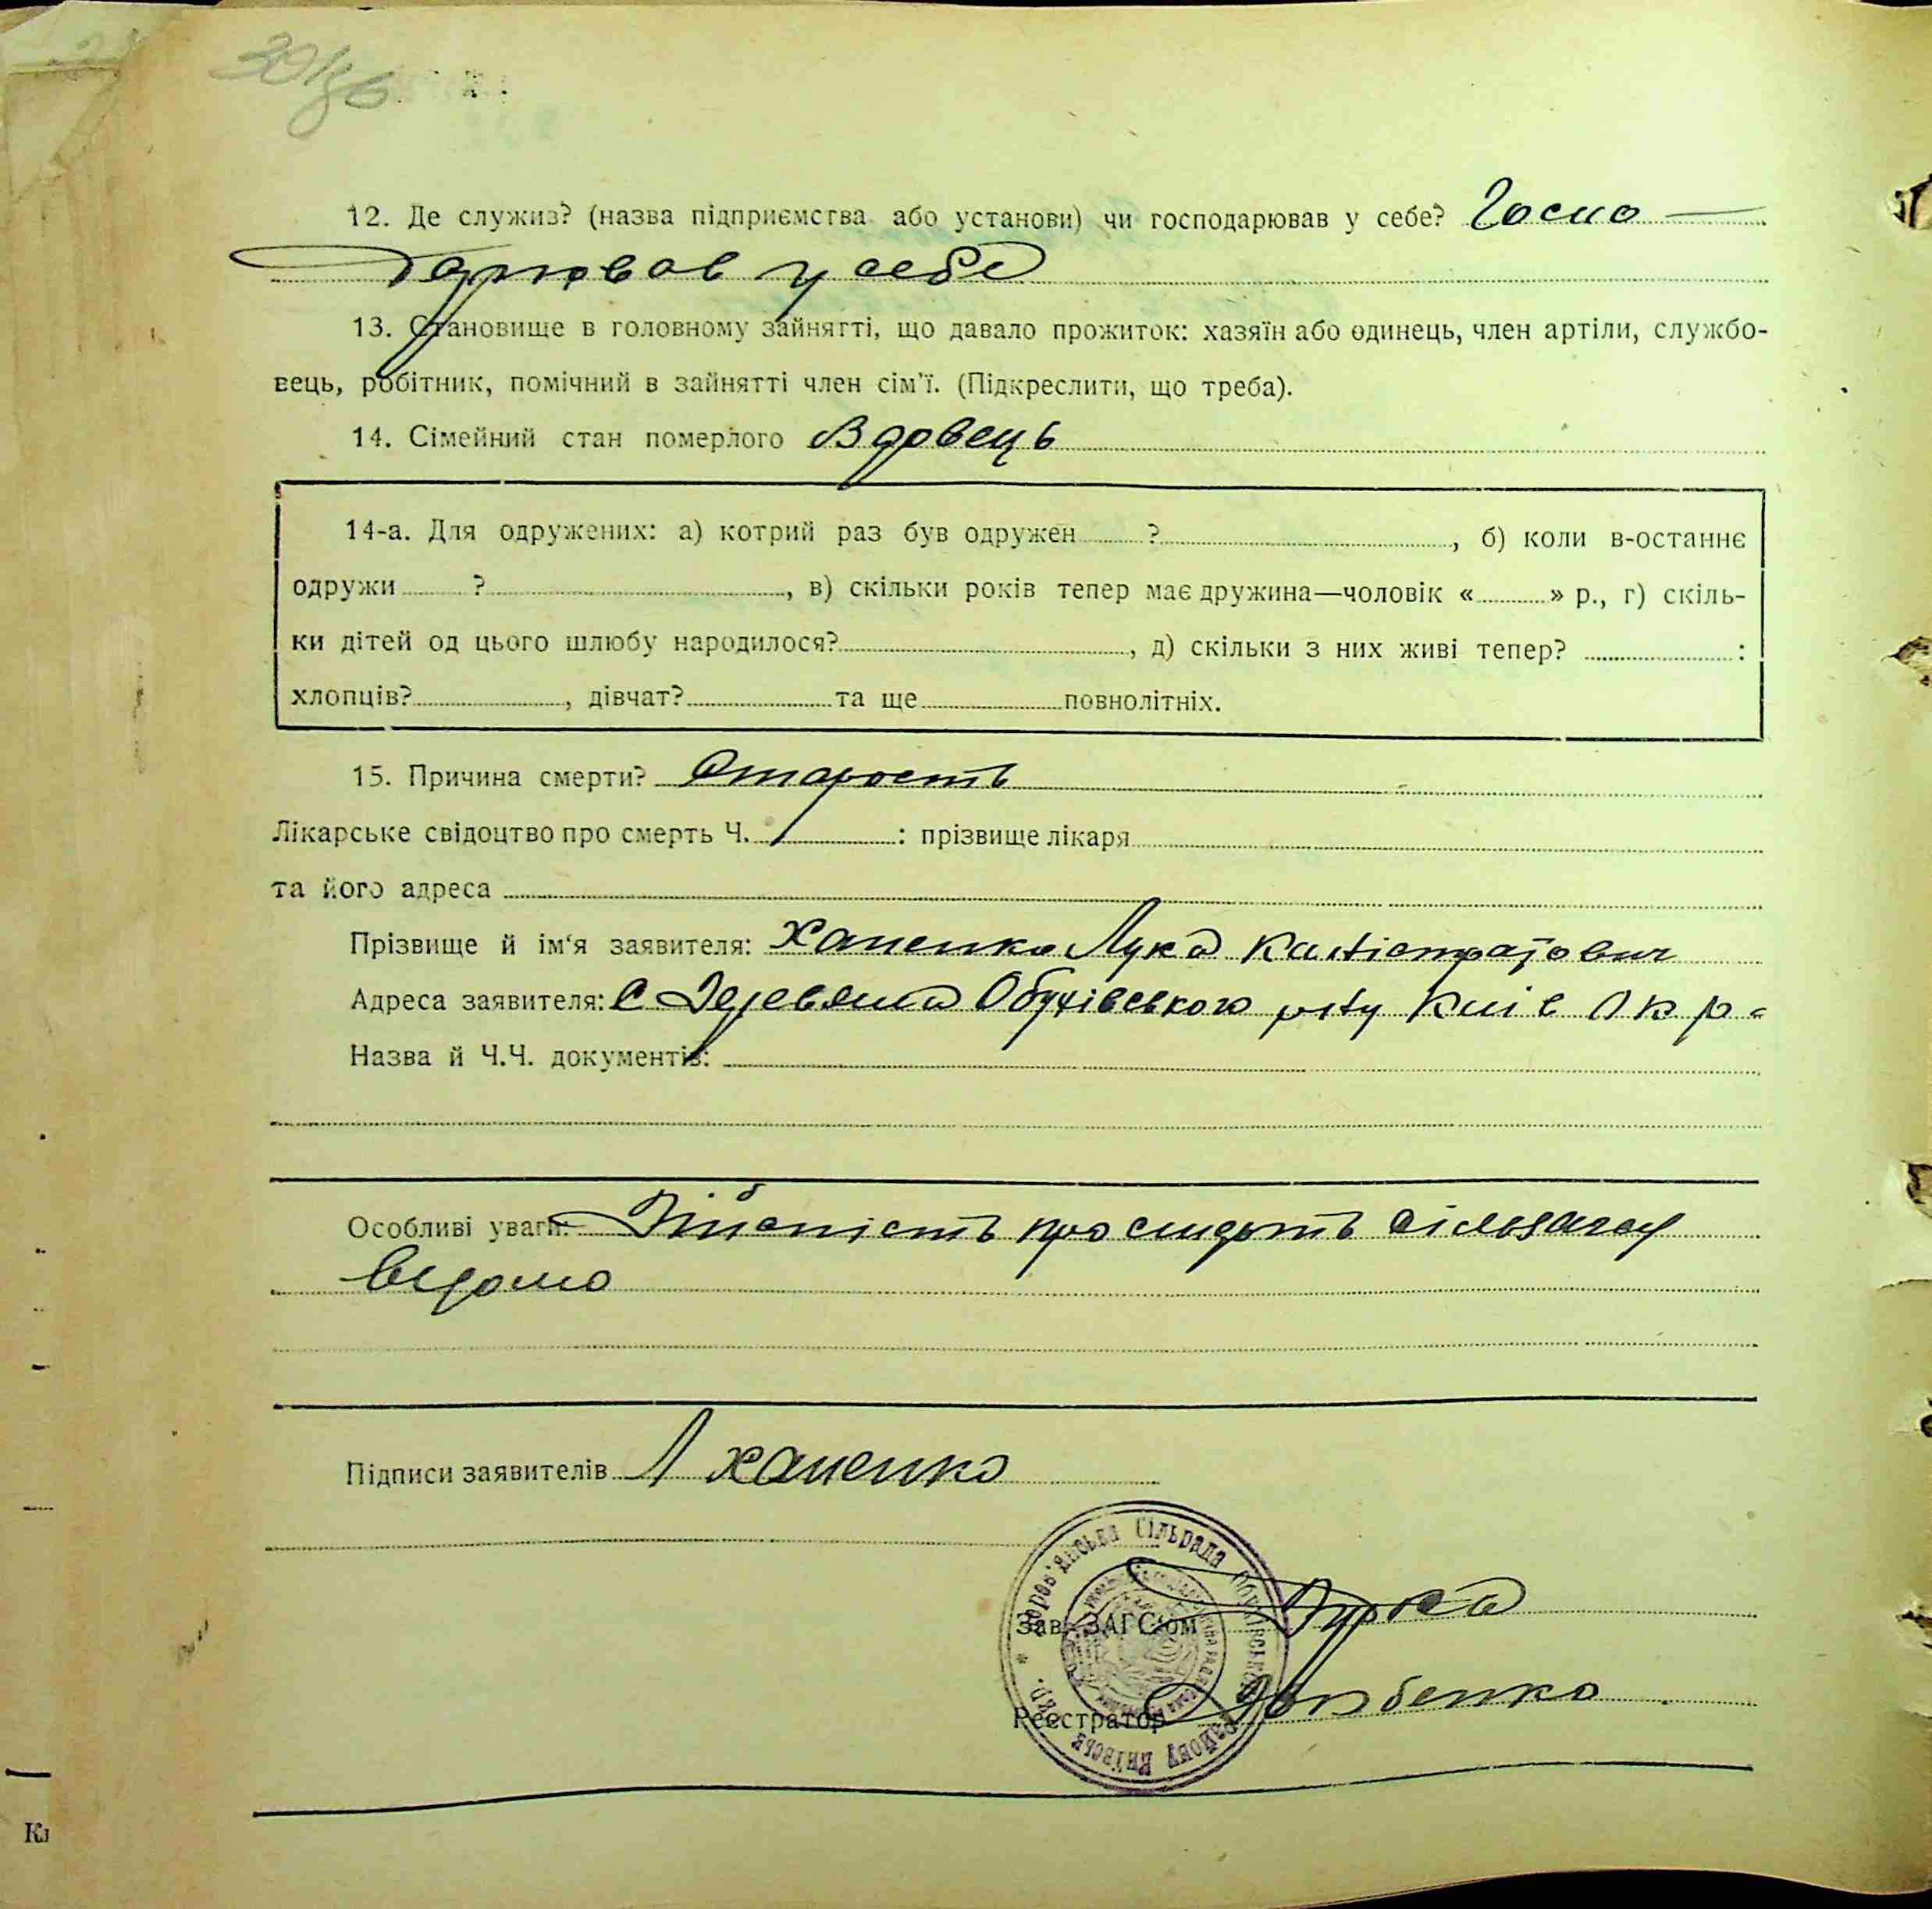 12. Де служив? (назва підприємства або установи) чи господарював у себе? Госпо-
дарював у себе
13. Становище в головному зайнятті, що давало прожиток: хазяїн або одинець, член артіли, службо-
вець, робітник, помічний в зайнятті член сім'ї. (Підкреслити, що треба).
14. Сімейний стан померлого Вдовець
14-а. Для одружених: а) котрий раз був одружен ? , б) коли в-останнє
одружи ? , в) скільки років тепер має дружина—чоловік « » р., г) скіль-
ки дітей од цього шлюбу народилося? , д) скільки з них живі тепер? :
хлопців? , дівчат? та ще повнолітніх.
15. Причина смерти? Старость
Лікарське свідоцтво про смерть Ч. : прізвище лікаря
та його адреса
Прізвище й ім'я заявителя: Ханенко Лука Калістратович
Адреса заявителя: С Деревяна Обухівського р-ну Київ Окр-
Назва й Ч.Ч. документів:
Особливі уваги: Дійсність про смерть сільраді
відомо
Підписи заявителів Л Ханенко
Зав. ЗАГС'ом
Реєстратор
Сільрада Обухівськ району Київськ. окр.